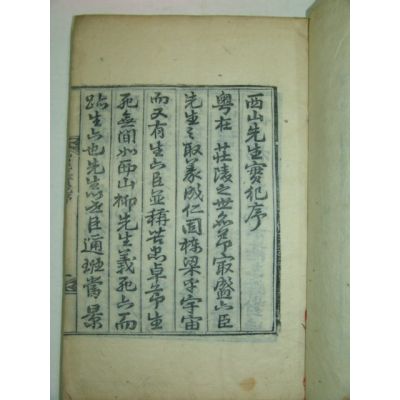 西山先生實紀序
粤在 莊陵之世名節㝡盛六臣
先生之取義成仁固棟梁乎宇宙
而又有生六臣並稱苦忠卓節生
死無間如西山柳先生義死六而
跡生六也先生世臣通班當景